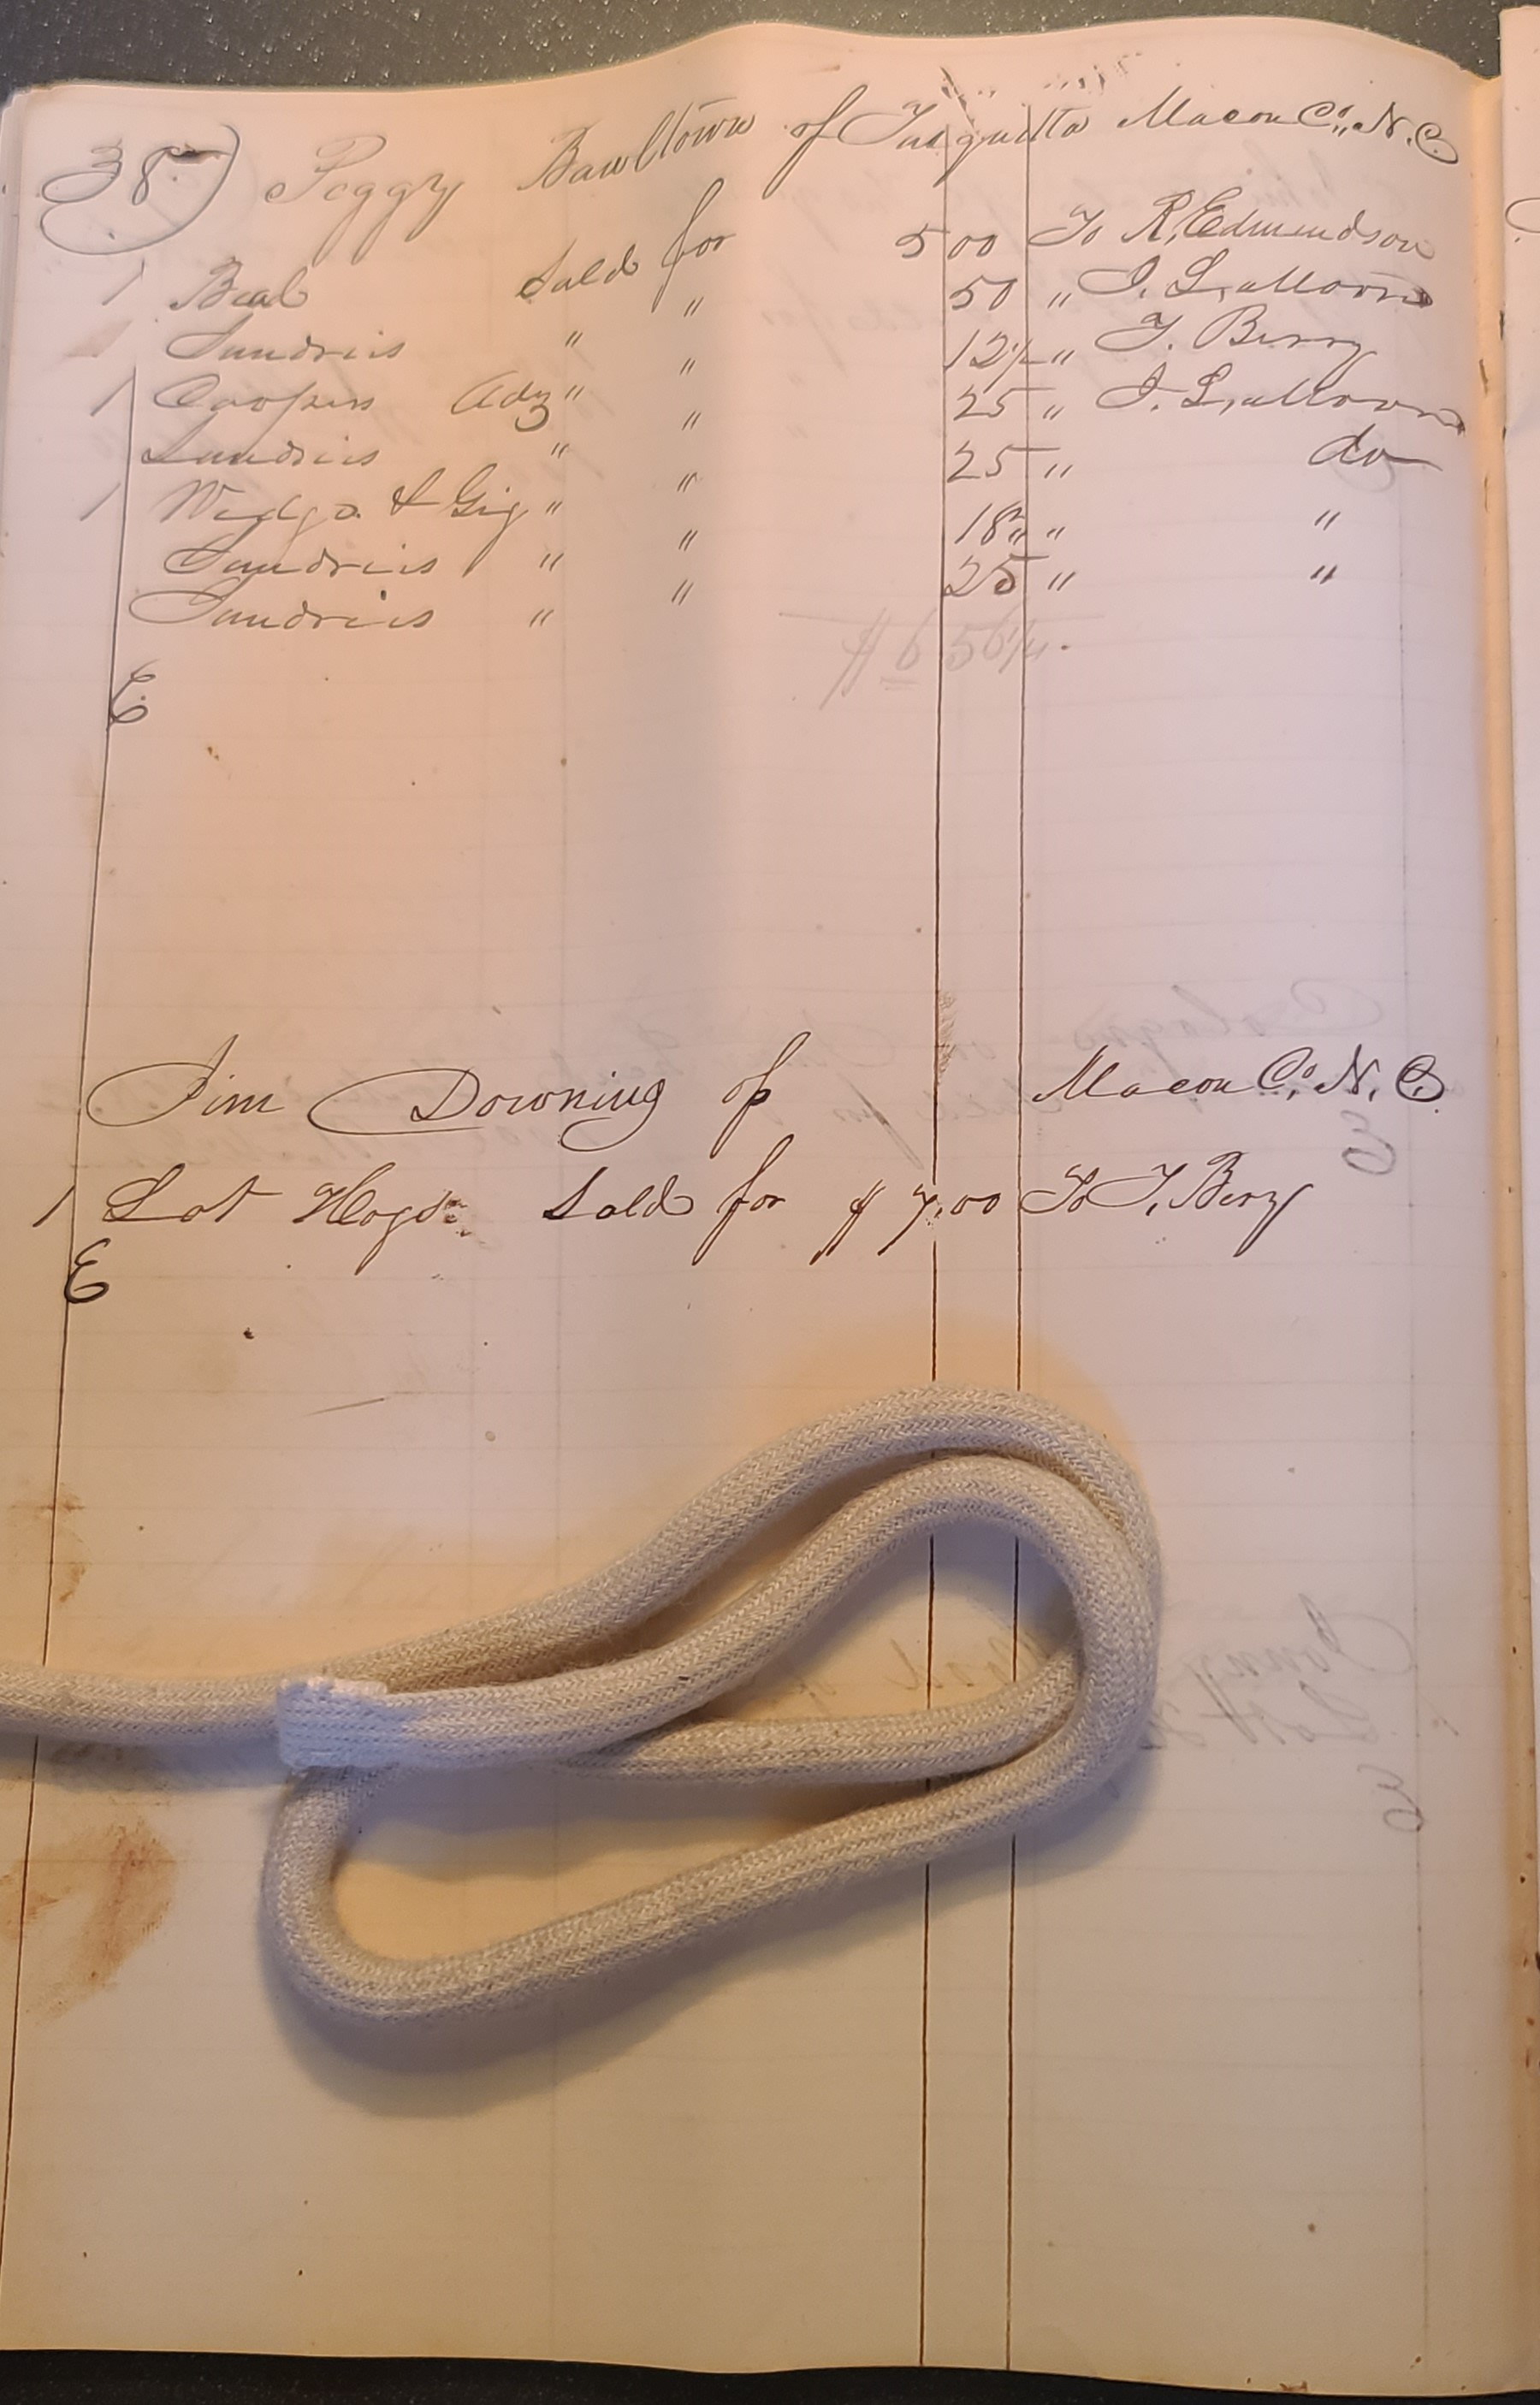 38) Peggy Bawltown of Tusquitta Macon Co., N. C.
1 Bead Sold for 5 00 To R, Edmundson
1 Sundries " " 50 " I. L, Moore
1 Coopers Adz " " 12½ " T. Berry
Sundries " " 25 " I. L, Moore
1 Wedge & Gig " " 25 " do
Sundries " " 18¾ " "
Sundries " " 25 " "
$ 6 56¼.
E
Jim Downing of Macon Co. N. C.
1 Lot Hogs. Sold for $ 7,00 To T, Berry
E